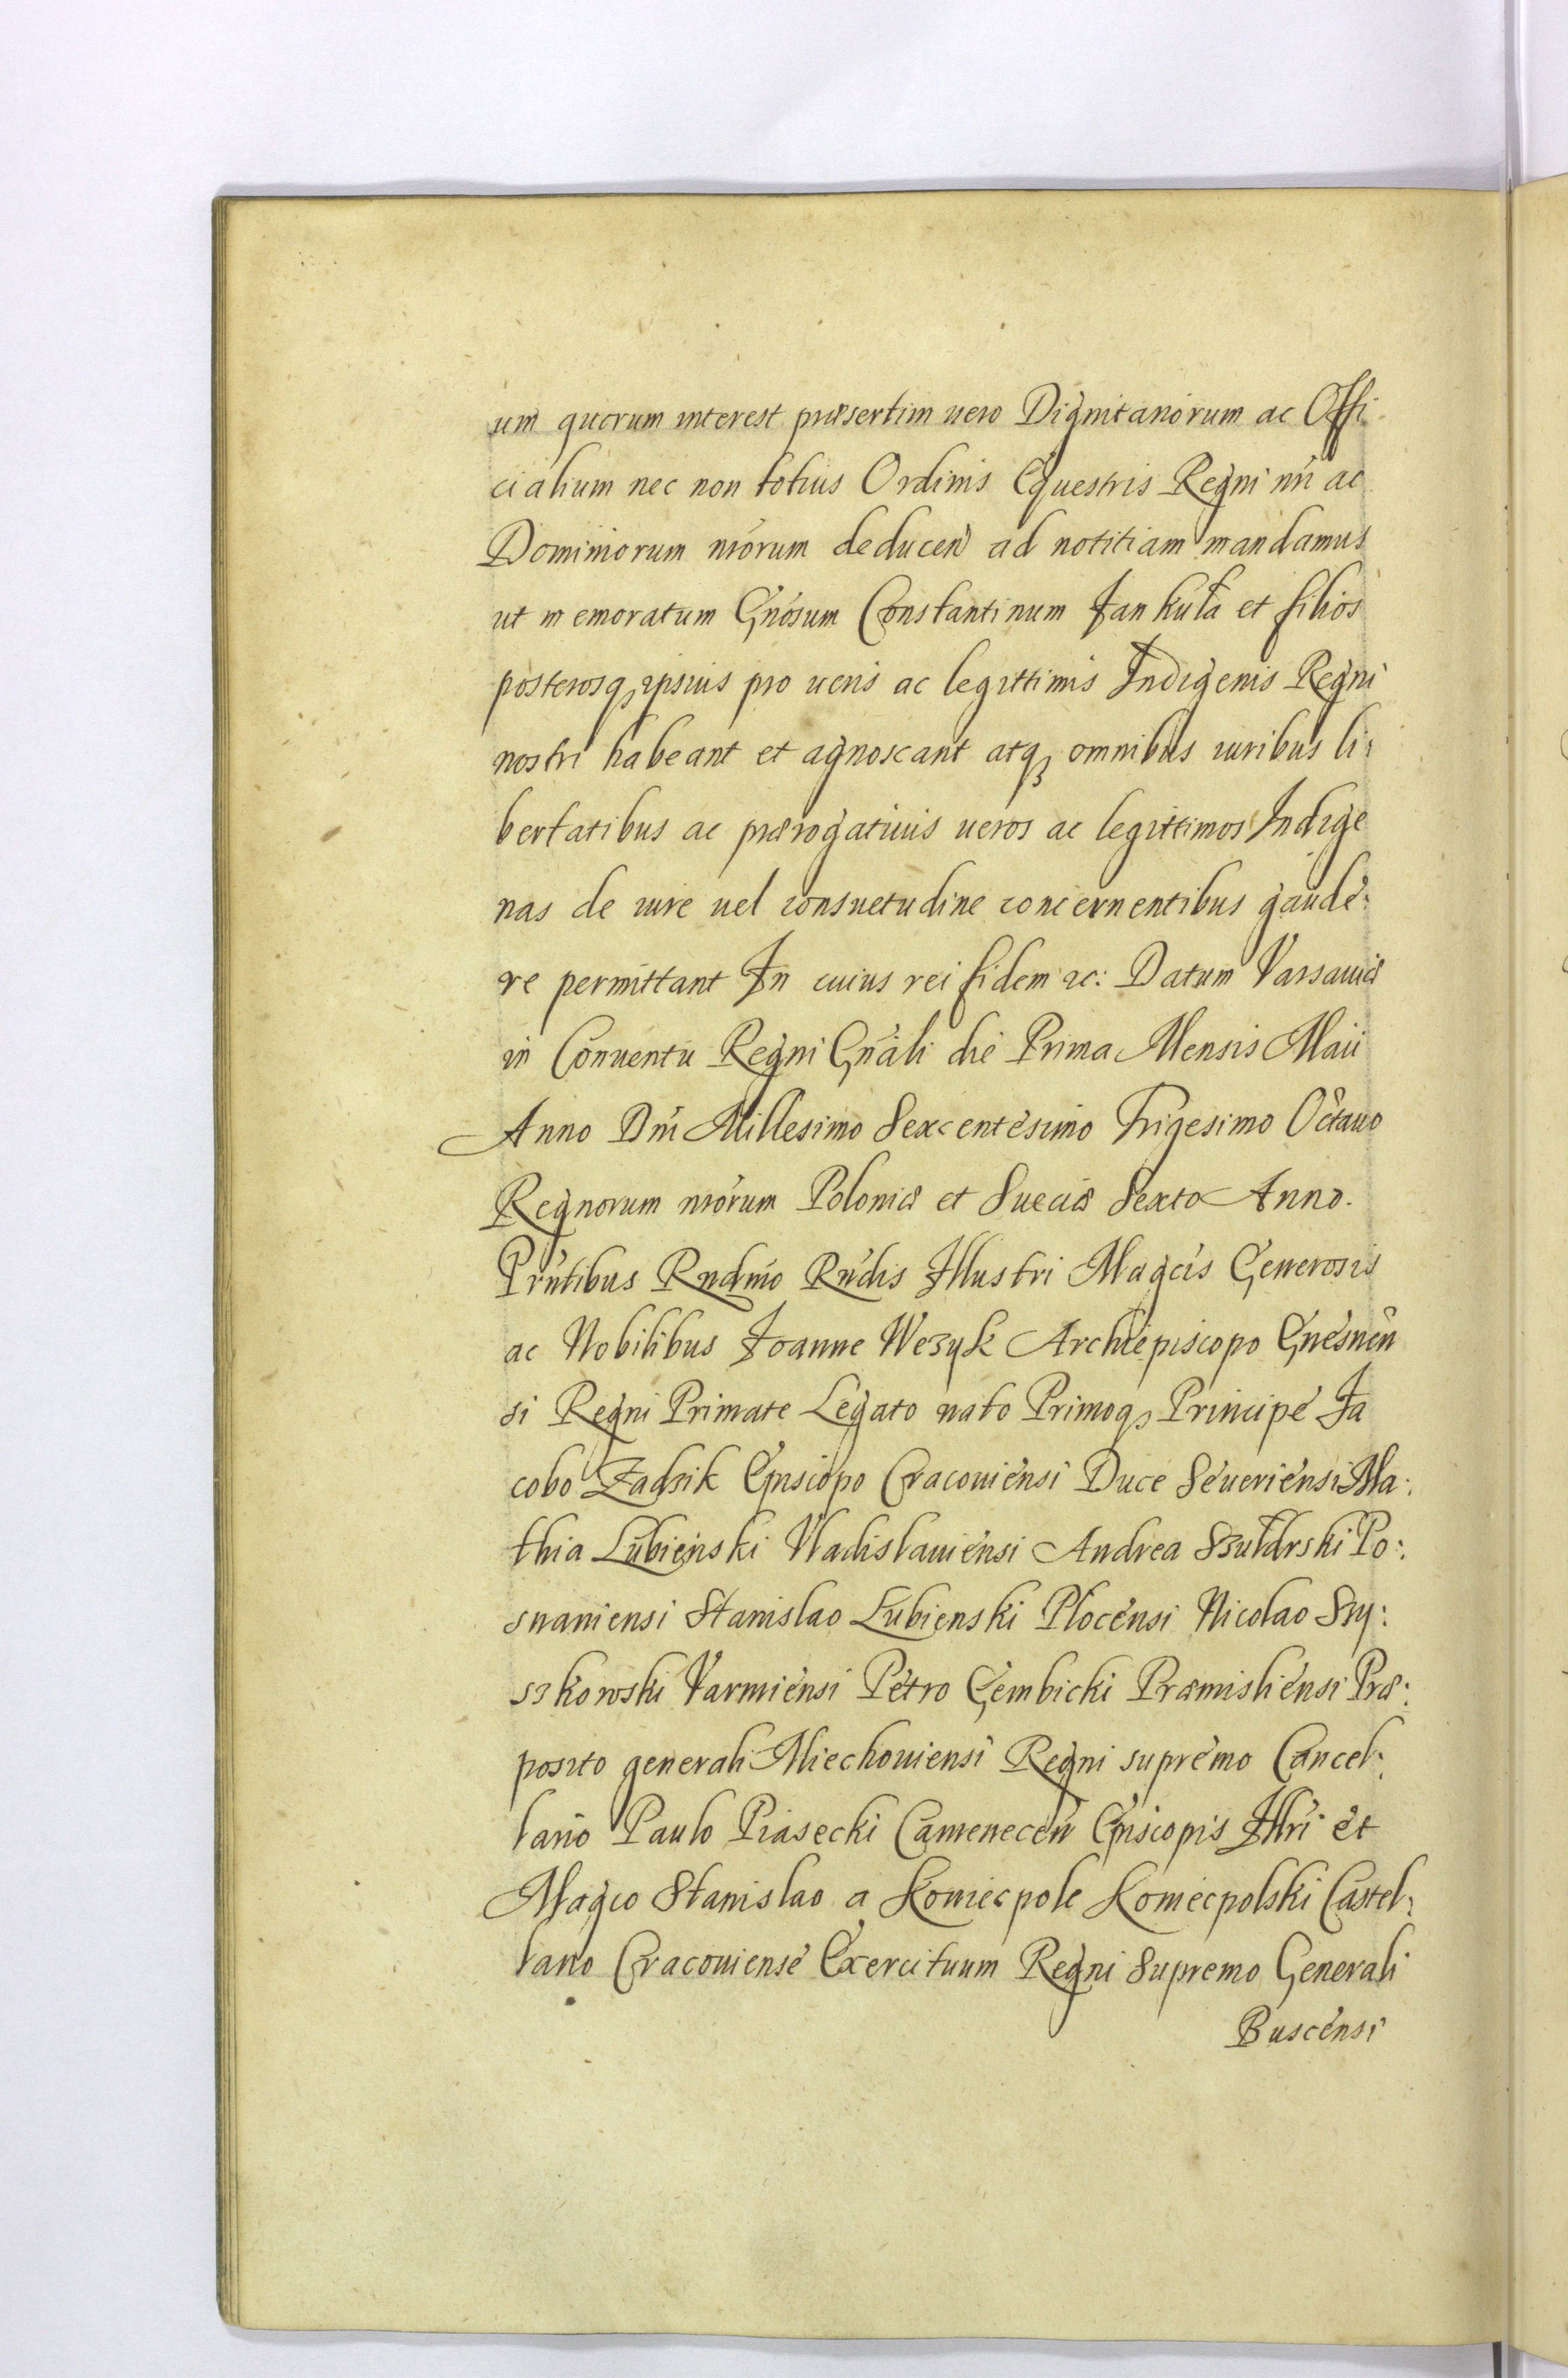 um quorum interest præsertim uero Dignitariorum ac Offi
cialium nec non totius Ordinis Equestris Regni nri ac
Dominiorum nrorum deducen ad notitiam mandamus
ut memoratum Gnosum Constantinum Jankuła et filios
posterosq₃ ipsius pro ueris ac legittimis Indigenis Regni
nostri habeant et agnoscant atq₃ omnibus iuribus li:
bertatibus ac prærogatiuis ueros ac legittimos Indige
nas de iure uel consuetudine concernentibus gaude:
re permittant In cuius rei fidem ꝛc: Datum Varsauiæ
in Conuentu Regni Gnali die Prima Mensis Maii
Anno Dni Millesimo Sexcentesimo Trigesimo Octauo
Regnorum nrorum Poloniæ et Sueciæ Sexto Anno.
Prntibus Rndmo Rndis Illustri Magcis Generosis
ac Nobilibus Joanne Wezyk Archiepiscopo Gnesnen
si Regni Primate Legato nato Primoq₃ Principe Ja
cobo Zadzik Episcopo Cracouiensi Duce Seueriensi Ma:
thia Lubieński Vladislauiensi Andrea Szułdrski Po:
snaniensi Stanislao Lubienski Plocensi Nicolao Szy:
szkowski Varmiensi Petro Gembicki Præmisliensi Præ:
posito generali Miechouiensi Regni supremo Cancel:
lario Paulo Piasecki Camenecen Episcopis Illri et
Magco Stanislao a Koniecpole Koniecpolski Castel:
lano Cracouiense Exercituum Regni Supremo Generali
Buscensi